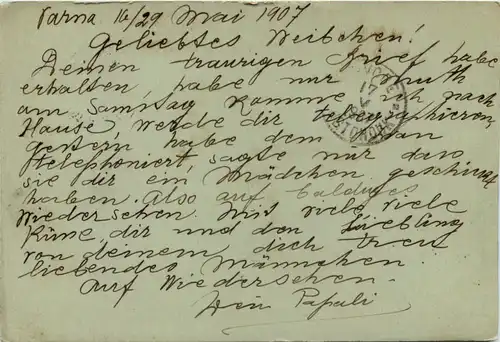 Varna 16/29 Mai 1907
Geliebtes Weibchen!
Deinen traurigen Brief habe
erhalten habe nur Muth
am Samstag komme ich nach
Hause, werde dir telegraphieren
gestern habe dem
telephoniert, sagte mir dass
sie dir ein Mädchen geschickt
haben. Also auf baldiges
Wiedersehen mit viele viele
Küsse dir und den Liebling
von deinem dich treu
liebendes Männchen.
Auf Wiedersehen.
Dein Papali